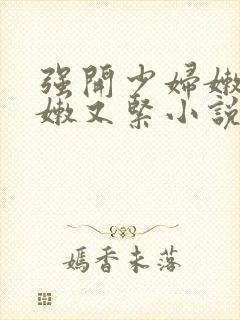 强開少婦嫩
嫩又緊小說
媽香未落